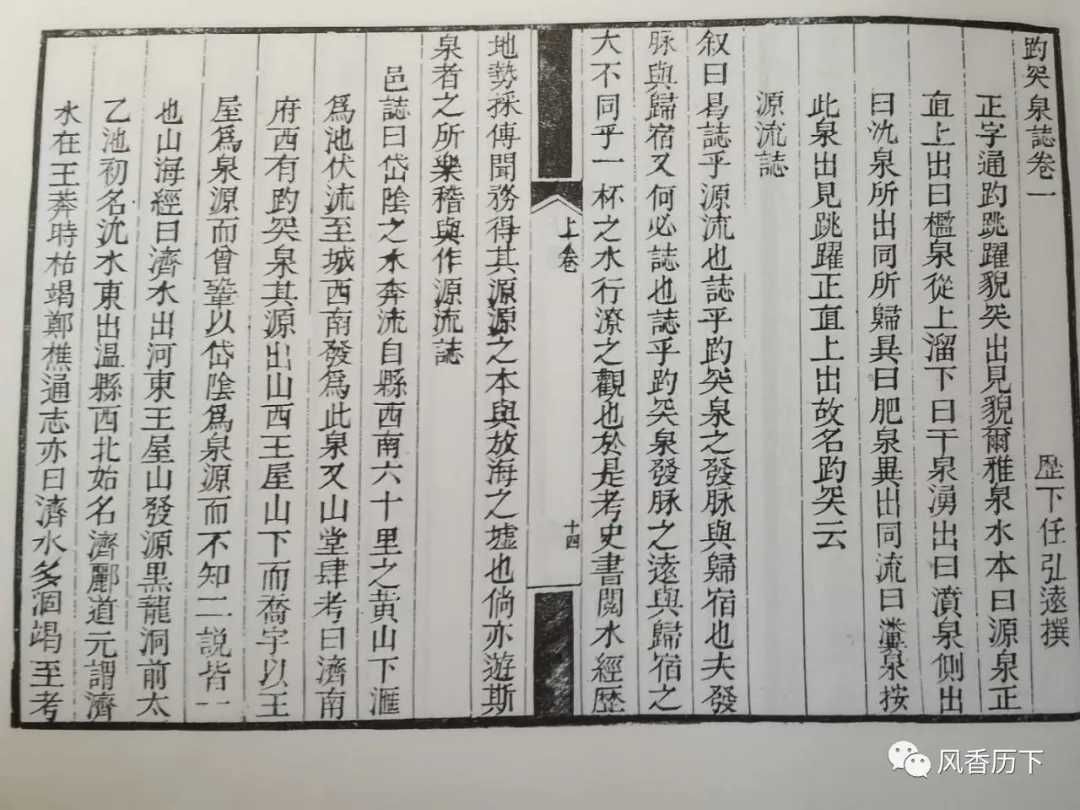 趵突泉誌卷一
歷下任弘遠撰
正字通趵跳躍貌突出見貌爾雅泉水本曰源泉正
直上出曰檻泉從上溜下曰下泉湧出曰濆泉側出
曰氿泉所出同所歸異曰肥泉異出同流曰瀵泉按
此泉出見跳躍正直上出故名趵突云
源流誌
叙曰曷誌乎源流也誌乎趵突泉之發脉與歸宿也夫發
脉與歸宿又何必誌也誌乎趵突泉發脉之遠與歸宿之
大不同乎一杯之水行潦之觀也於是考史書閱水經歷
上卷
十四
地勢採傳聞務得其源源之本與放海之墟也倘亦遊斯
泉者之所樂稽與作源流誌
邑誌曰岱陰之水奔流自縣西南六十里之黄山下滙
為池伏流至城西南發為此泉又山堂肆考曰濟南
府西有趵突泉其源出山西王屋山下而喬宇以王
屋為泉源而曾鞏以岱陰為泉源而不知二説皆一
也山海經曰濟水出河東王屋山發源黑龍洞前太
乙池初名沇水東出温縣西北始名濟酈道元謂濟
水在王莽時枯竭鄭樵通志亦曰濟水多涸竭至考
风香历下